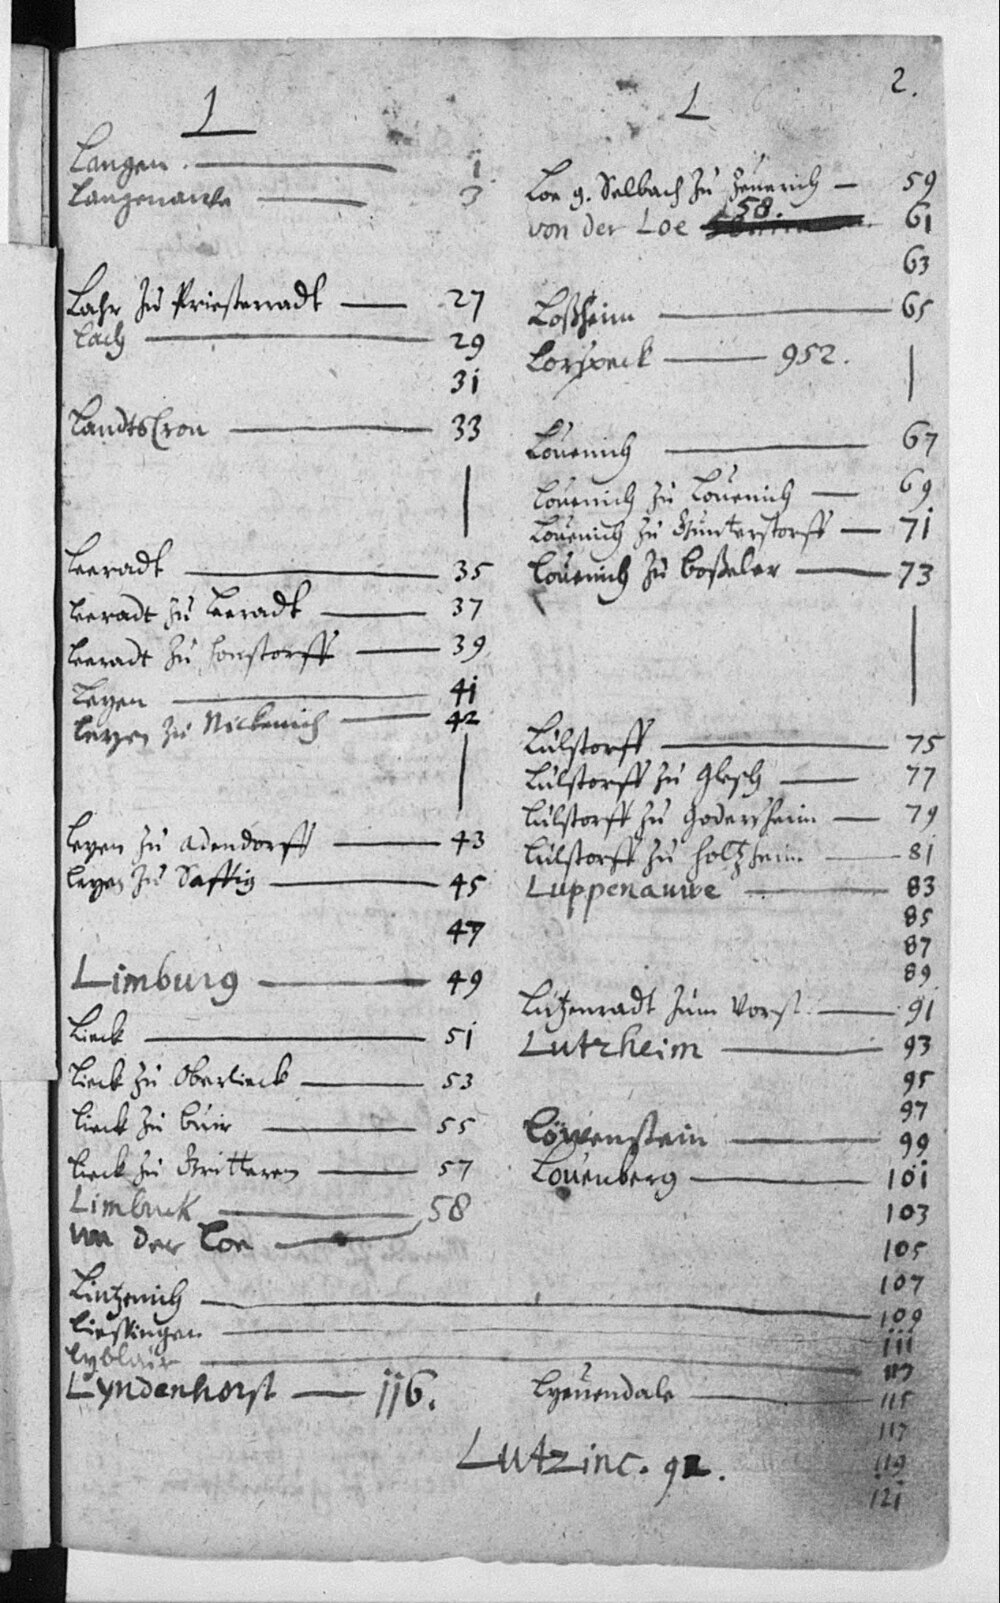 2.
L
Langen. 1
Langenauwe 3
Lahr zu Priesterradt 27
Lach 29
31
LandtsCron 33
Leeradt 35
Leeradt zu Leeradt 37
Leeradt zu Honstorff 39
Leyen 41
Leyen zu Nickenich 42
Leyen zu Adendorff 43
Leyen zu Saffig 45
47
Limburg 49
Lieck 51
Lieck zu Oberlieck 53
Lieck zu Buir 55
Lieck zu 57
Limbeck 58
von der Loe
Lintzenich 109
Liessingen 111
Lyblair 113
Lyndenhorst 116.
L
Loe g. Selbach zu 59
von der Loe 58. 61
63
Loßheim 65
Lorspeck 952.
Louenich 67
Louenich zu Louenich 69
Louenich zu Gunterstorff 71
Louenich zu Boßeler 73
Lülstorff 75
Lülstorff zu Glesch 77
Lülstorff zu Godersheim 79
Lülstorff zu Holtzheim 81
Luppenauwe 83
85
87
89
Lützenradt zum Vorst 91
Lutzheim 93
95
97
Löwenstein 99
Louenberg 101
103
105
107
Lyeuendale 115
117
119
121
Lutzinc. 92.